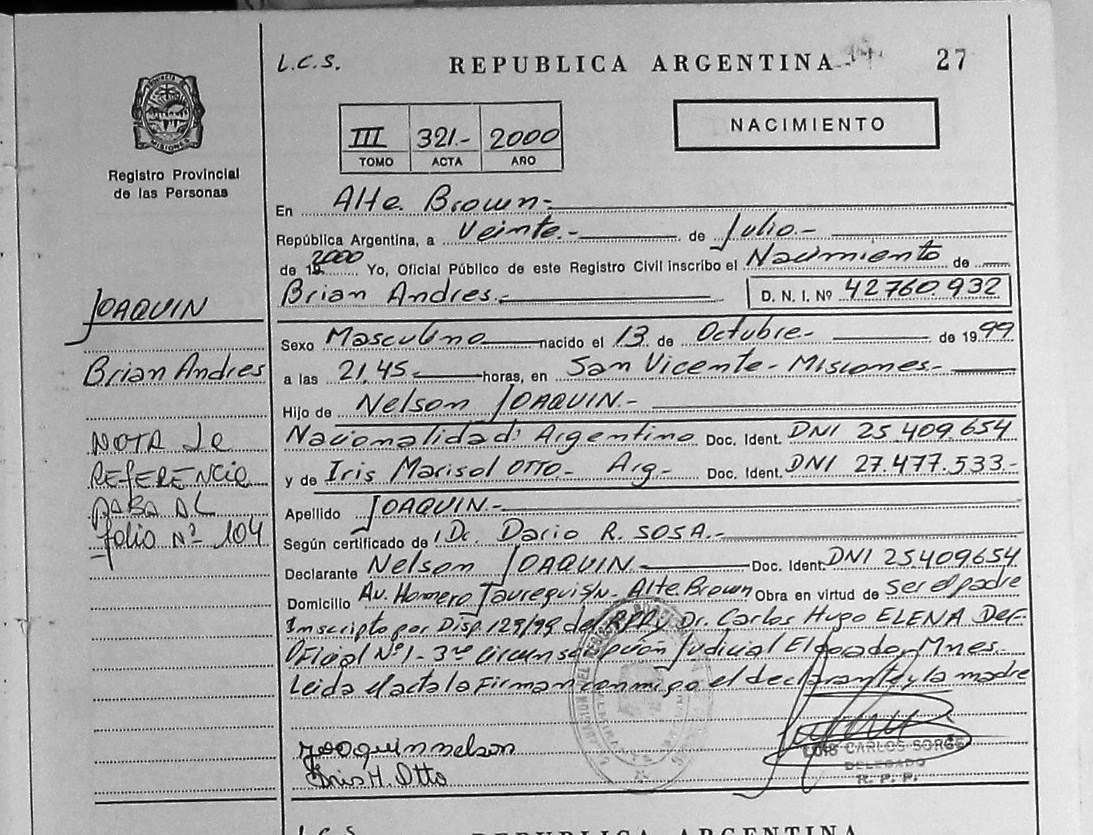 L.C.S. REPUBLICA ARGENTINA 27
PROVINCIA DE MISIONES
Registro Provincial
de las Personas
III 321.- 2000
TOMO ACTA AÑO
NACIMIENTO
En Alte. Brown.-
República Argentina, a Veinte.- de Julio.-
de 2000 Yo, Oficial Público de este Registro Civil inscribo el Nacimiento de
Brian Andres.- D. N. I. Nº 42760932
JOAQUIN
Brian Andres
NOTA de
REFERENCIA
PASA AL
folio Nº 104
Sexo Masculino nacido el 13 de Octubre.- de 1999
a las 21,45.- horas, en San Vicente - Misiones.-
Hijo de Nelson JOAQUIN.-
Nacionalidad: Argentino Doc. Ident. DNI 25.409.654
y de Iris Marisol OTTO.- Arg.- Doc. Ident. DNI 27.477.533.-
Apellido JOAQUIN.-
Según certificado de Dr. Dario R. SOSA.-
Declarante Nelson JOAQUIN.- Doc. Ident. DNI 25409654
Domicilio Av. Homero S/N.- Alte Brown Obra en virtud de ser el padre
Inscripto por Disp. 129/99 del RPP y Dr. Carlos Hugo ELENA Def.
Oficial Nº 1 - 3ra Circunscripción Judicial Eldorado, Mnes.
Leida el acta la Firman conmigo el declarante y la madre
Joaquin nelson
Iris M. Otto
LUIS CARLOS SORGE
DELEGADO
R. P. P.
L.C.S. REPUBLICA ARGENTINA